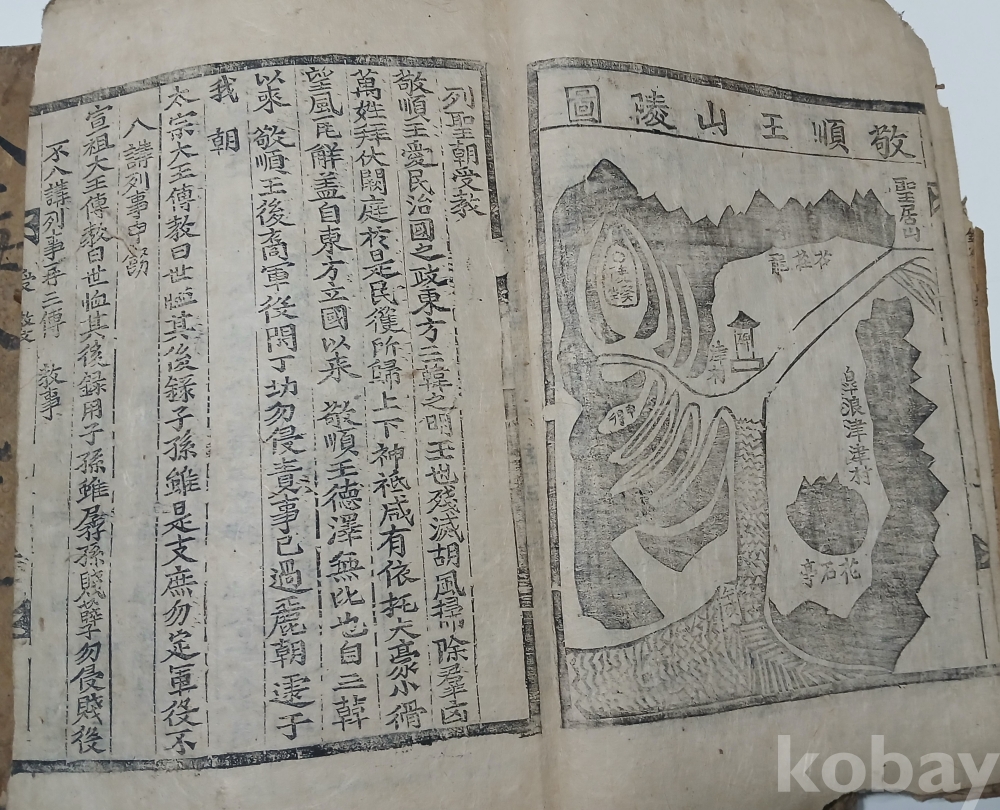 敬順王山陵圖
聖居山
皐浪津津村
花石亭
列聖朝受教
敬順王愛民治國之政東方三韓之明王也殘滅胡風掃除羣凶
萬姓拜伏闕庭於是民獲所歸上下神祇咸有依托大豪小猾
望風瓦解盖自東方立國以來 敬順王德澤無比也自三韓
以來 敬順王後裔軍役閑丁切勿侵責事已過麗朝逮于
我 朝
太宗大王傳教曰世恤其後錄子孫雖是支庶勿定軍役不
入講列事申飭
宣祖大王傳教曰世恤其後錄用子孫雖孱孫賤孼勿侵賤役
不入講列事再三傳 教事
受教
kobay